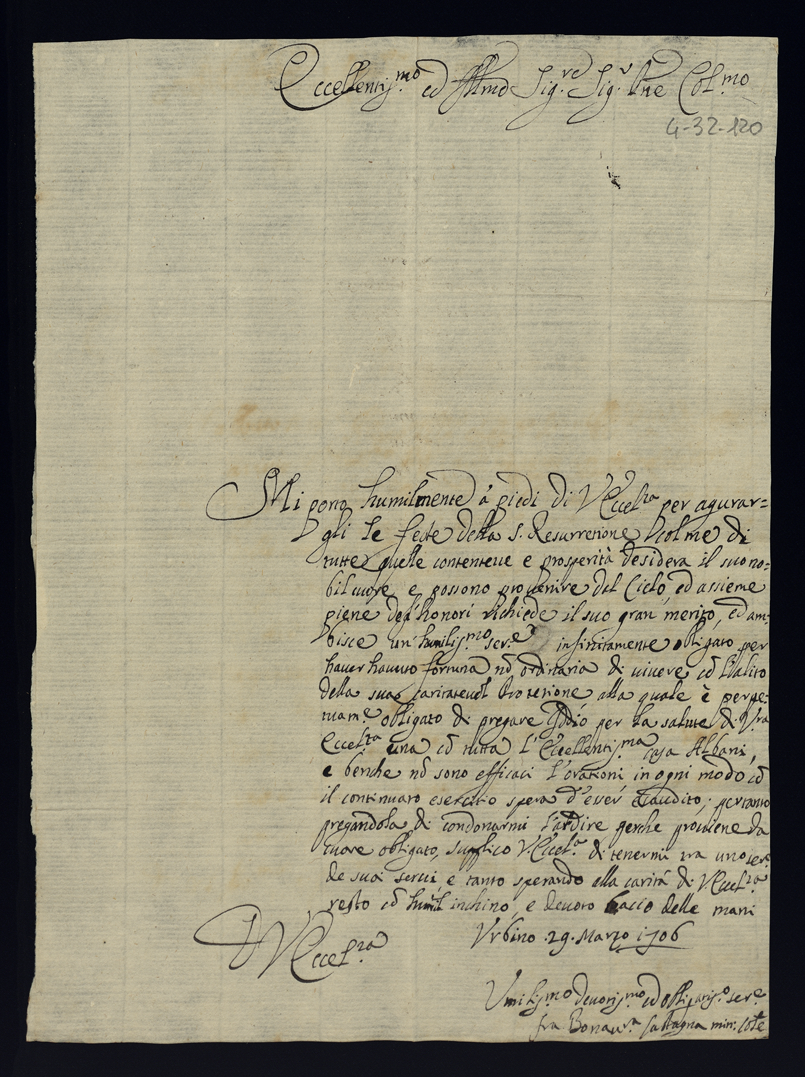 Eccellentiss.mo ed Ill.mo Sig.re Sig.r Pne Col.mo
4-32-120
Mi porto humilmente à piedi di V Eccel.za per agurar=
gli le feste della S. Resurretione colme di
tutte quelle contentezze e prosperità desidera il suo no=
bil cuore, e possono provenire dal Cielo, ed assieme
piene degl'honori richiede il suo gran merito, ed am=
bisce un' humiliss.mo ser.e infinitamente obligato per
haver havuto fortuna nõ ordinaria di vivere cõ l'alito
della sua caritatevol Protetione alla quale è perpe=
tuam.e obligato di pregare Iddio per la salute di V.ra
Eccel.za una cõ tutta l'Eccellentiss.ma casa Albani,
e benche nõ sono efficaci l'orationi in ogni modo cõ
il continuato esercitio spera d'esser esaudito; pertanto
pregandola di condonarmi l'ardire perche proviene da
cuore obligato, supplico V. Eccel.za di tenermi tra uno
de suoi servi, e tanto sperando alla carità di V Eccel.za
resto cõ humil inchino, e devoto baccio delle mani
D V Eccel.za
Urbino 29. Marzo 1706
Umiliss.mo devotiss.mo ed obligatiss.o ser.e
fra Bonav.ra Castagna min: Con.le